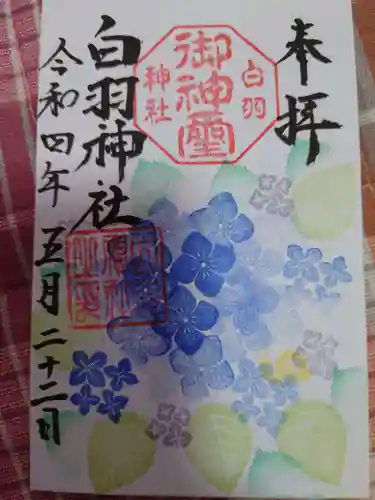 奉拝
白羽
御神璽
神社
白羽神社
令和四年五月二十二日